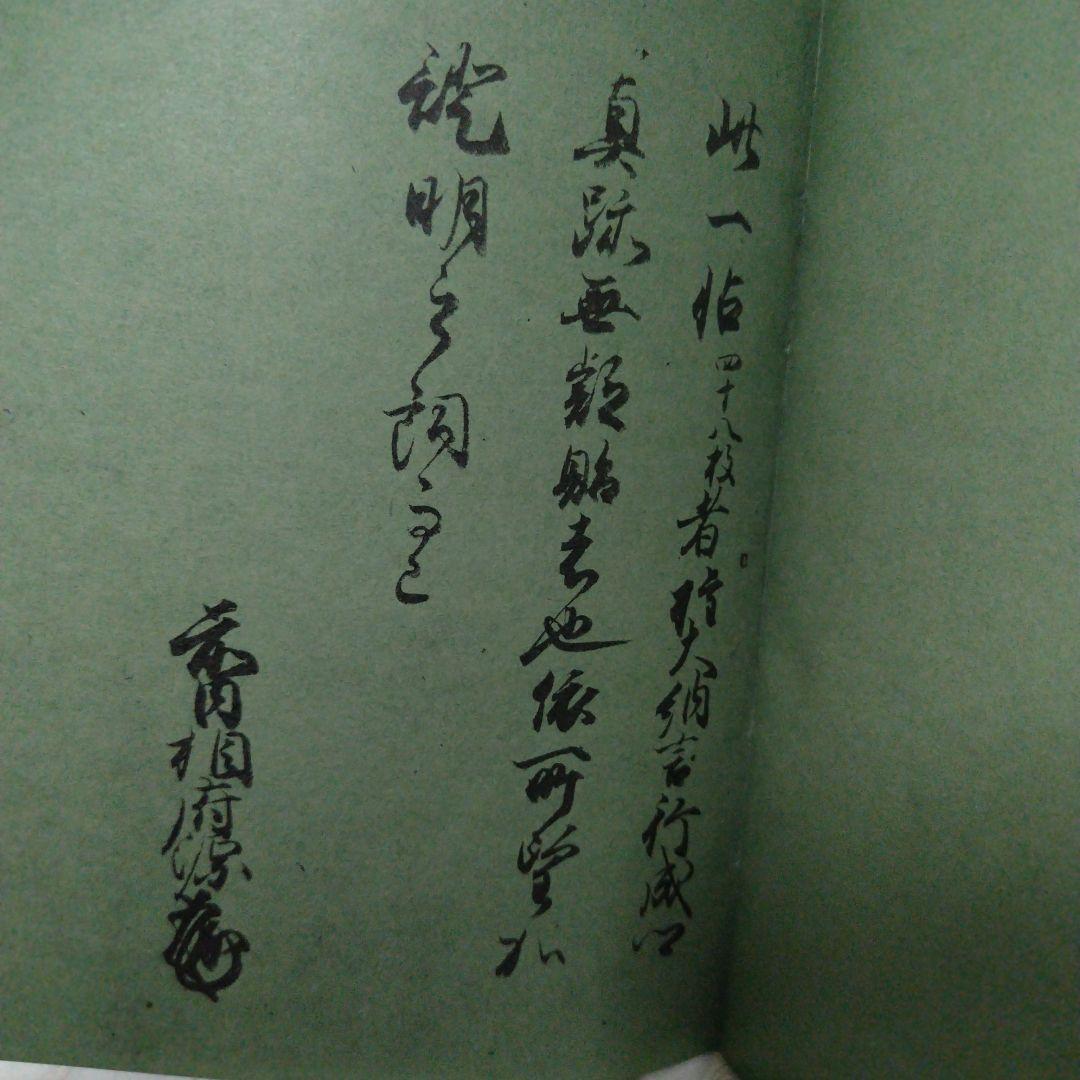 此一帖四十八枚者権大納言行成卿
真跡無疑貽者也依所望加
證明之詞而已
前内相府源